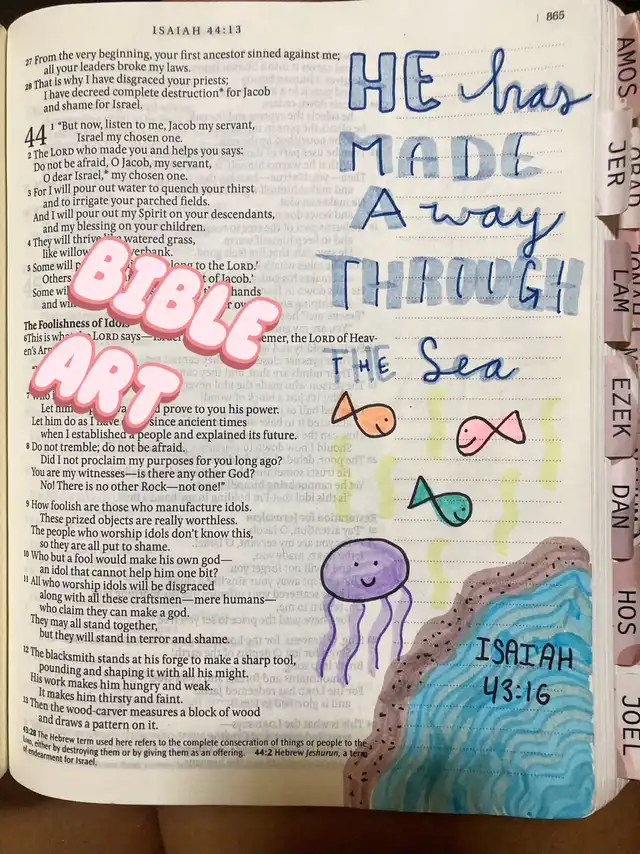 ISAIAH 44:13
865
27 From the very beginning, your first ancestor sinned against me;
all your leaders broke my laws.
28 That is why I have disgraced your priests;
I have decreed complete destruction* for Jacob
and shame for Israel.
44 1 "But now, listen to me, Jacob my servant,
Israel my chosen one.
2 The LORD who made you and helps you says:
Do not be afraid, O Jacob, my servant,
O dear Israel,* my chosen one.
3 For I will pour out water to quench your thirst
and to irrigate your parched fields.
And I will pour out my Spirit on your descendants,
and my blessing on your children.
4 They will thrive watered grass,
like willow verbank.
5 Some will to the LORD.'
Others t of Jacob.'
Some wil hands
and wi
The Foolishness of Idols
6 This is wha LORD says— emer, the LORD of Heav-
en's Ar
Let him prove to you his power.
Let him do as I have since ancient times
when I established a people and explained its future.
8 Do not tremble; do not be afraid.
Did I not proclaim my purposes for you long ago?
You are my witnesses—is there any other God?
No! There is no other Rock—not one!"
9 How foolish are those who manufacture idols.
These prized objects are really worthless.
The people who worship idols don't know this,
so they are all put to shame.
10 Who but a fool would make his own god—
an idol that cannot help him one bit?
11 All who worship idols will be disgraced
along with all these craftsmen—mere humans—
who claim they can make a god.
They may all stand together,
but they will stand in terror and shame.
12 The blacksmith stands at his forge to make a sharp tool,
pounding and shaping it with all his might.
His work makes him hungry and weak.
It makes him thirsty and faint.
13 Then the wood-carver measures a block of wood
and draws a pattern on it.
43:28 The Hebrew term used here refers to the complete consecration of things or people to the
LORD, either by destroying them or by giving them as an offering. 44:2 Hebrew Jeshurun, a term
of endearment for Israel.
BIBLE
ART
HE has
MADE
A way
THROUGH
THE Sea
ISAIAH
43:16
AMOS
JER
LAM
EZEK
DAN
HOS
JOEL